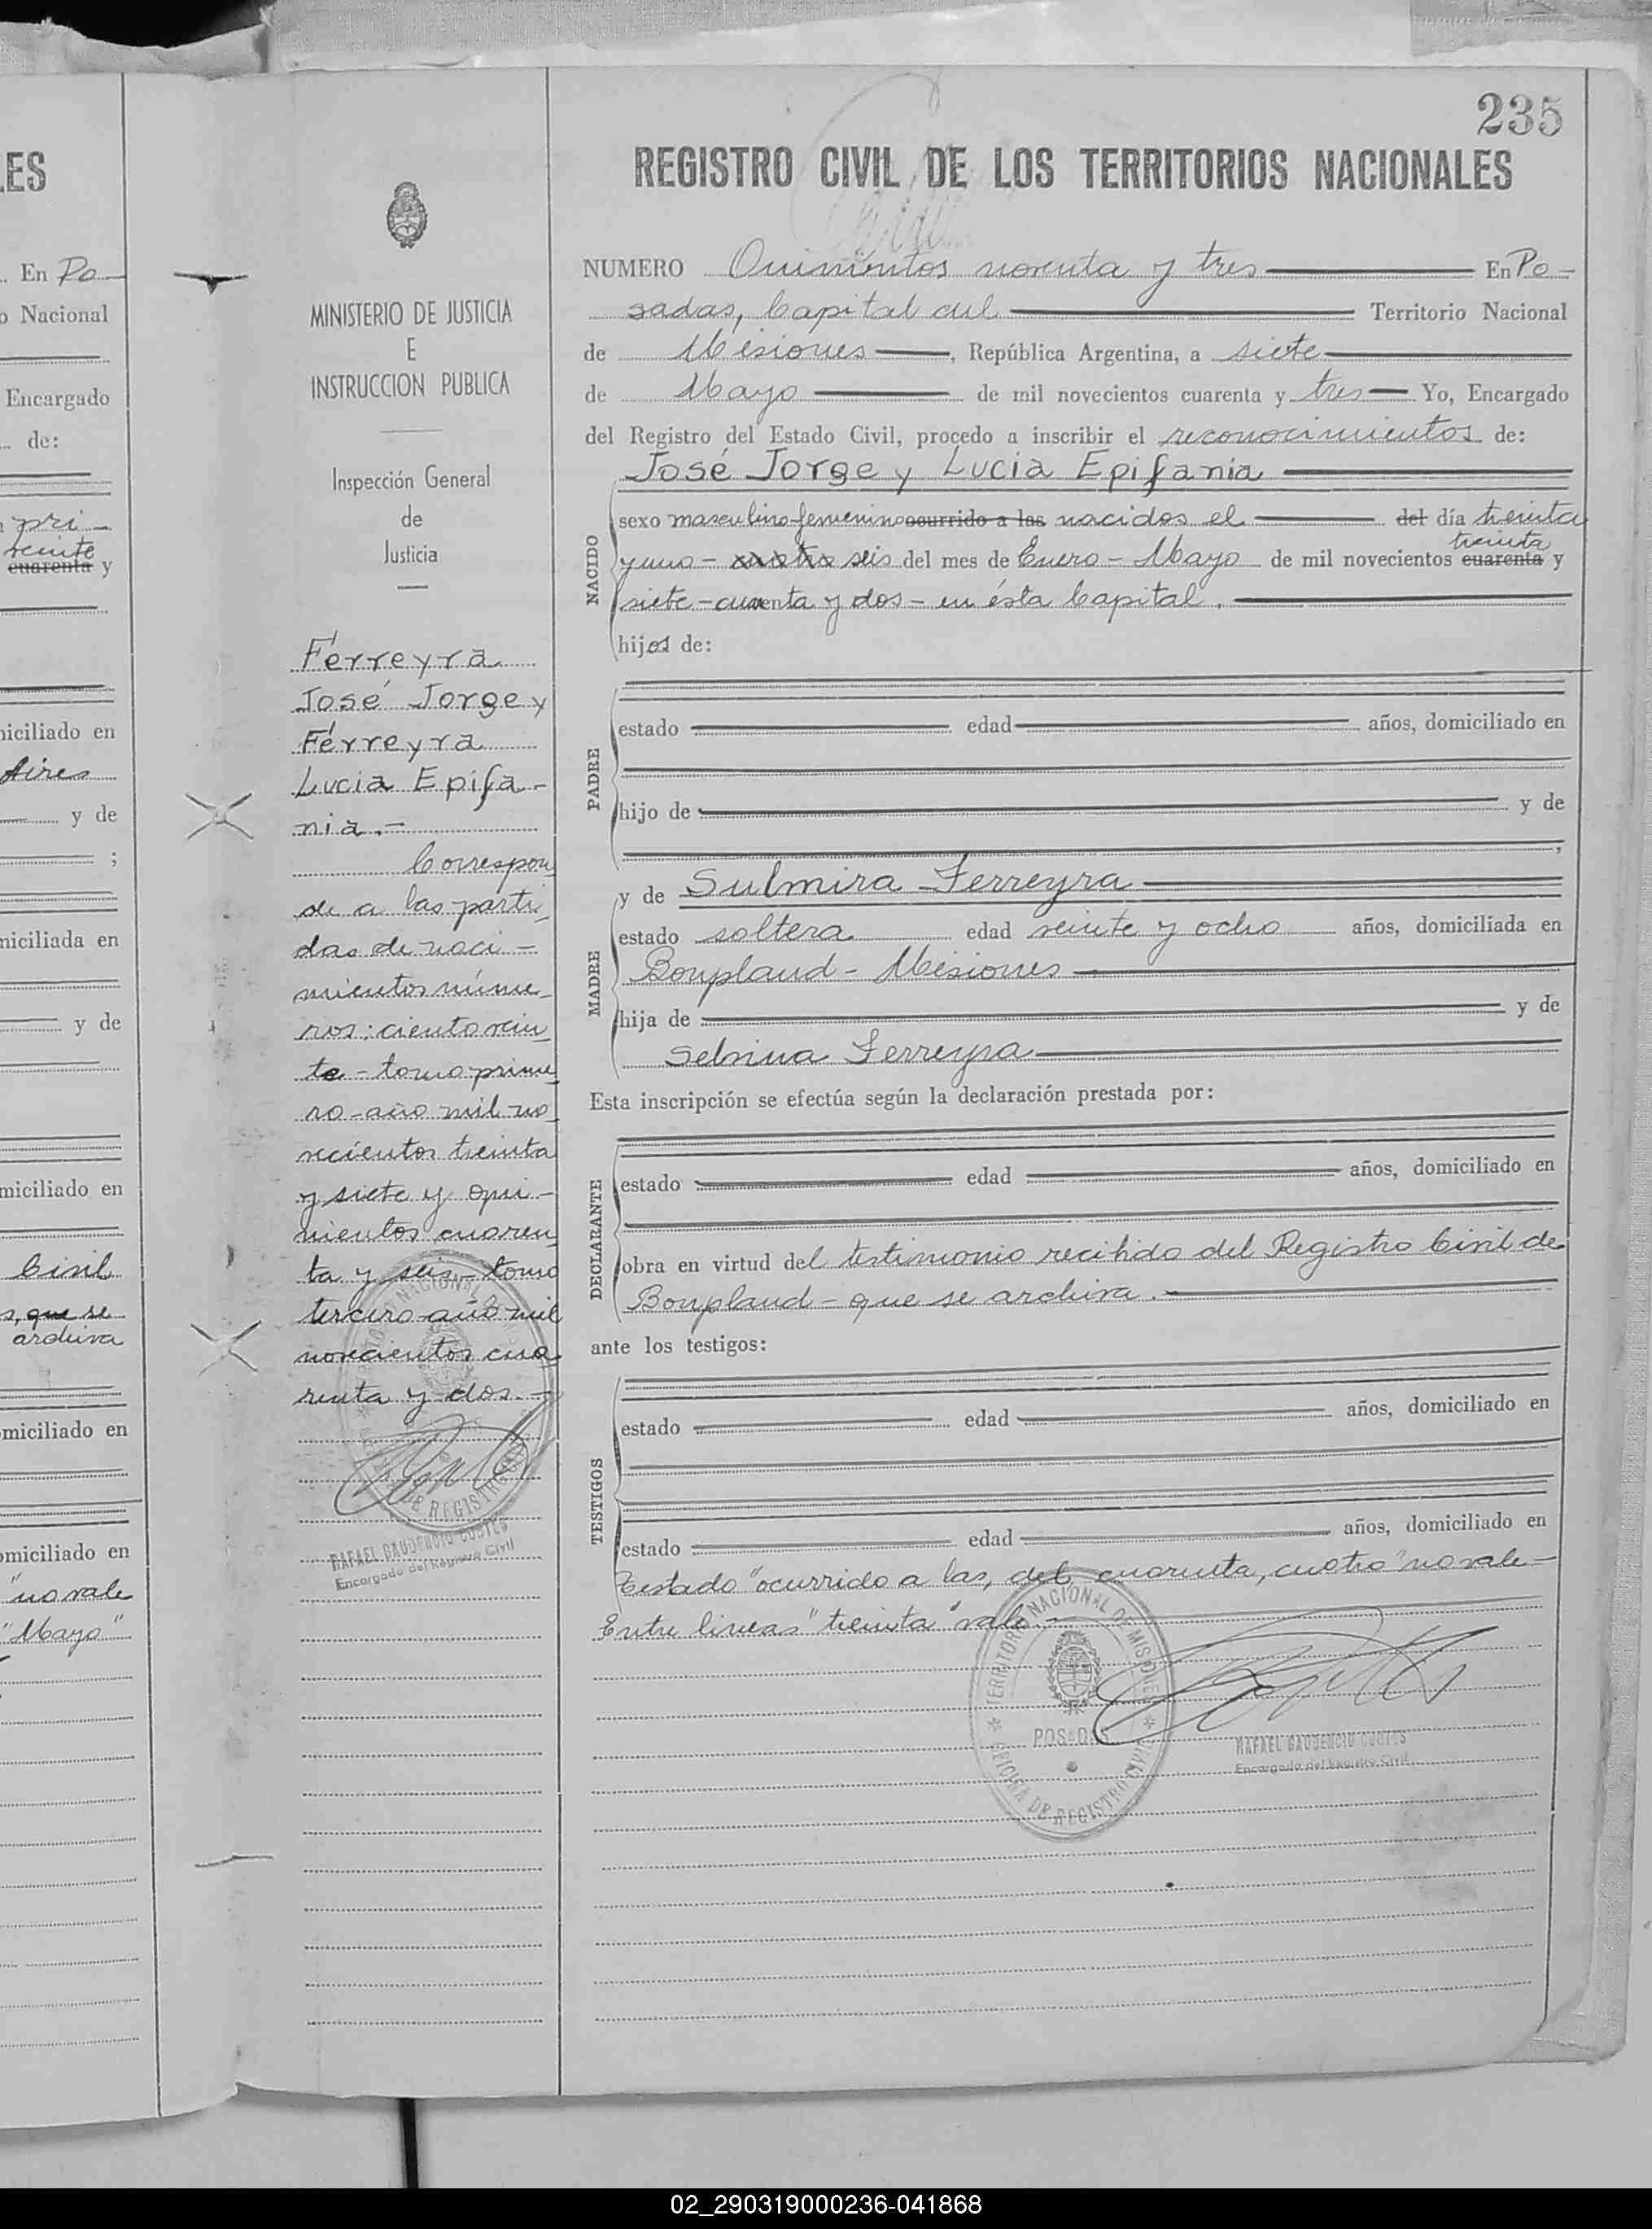 235
LES
REGISTRO CIVIL DE LOS TERRITORIOS NACIONALES
En Po
o Nacional
Encargado
de:
pri
veinte
cuarenta y
niciliado en
Aires
y de
;
niciliada en
y de
miciliado en
Civil
s, que se
archiva
omiciliado en
omiciliado en
"no vale
"Mayo"
MINISTERIO DE JUSTICIA
E
INSTRUCCION PUBLICA
Inspección General
de
Justicia
Ferreyra
José Jorge y
Ferreyra
Lucia Epifa-
nia.-
Correspon
de a las parti
das de naci-
mientos núme-
ros: ciento vein
te - tomo prime
ro-año mil no
vecientos treinta
y siete y qui-
nientos cuaren
ta y seis - tomo
tercero año mil
novecientos cua
renta y dos.-
RAFAEL GAUDENCIO CORTES
Encargado del Registro Civil
NUMERO Quinientos noventa y tres En Po-
sadas, Capital del Territorio Nacional
de Misiones, República Argentina, a siete
de Mayo de mil novecientos cuarenta y tres Yo, Encargado
del Registro del Estado Civil, procedo a inscribir el reconocimientos de:
José Jorge y Lucia Epifania
NACIDO
sexo masculino-femenino ocurrido a las nacidos el del día treinta
treinta
y uno - seis del mes de Enero - Mayo de mil novecientos cuarenta y
siete - cuarenta y dos - en ésta Capital.
hijos de:
PADRE
estado edad años, domiciliado en
hijo de y de
;
MADRE
y de Sulmira Ferreyra
estado soltera edad veinte y ocho años, domiciliada en
Bonpland - Misiones
hija de y de
Selvina Ferreyra
Esta inscripción se efectúa según la declaración prestada por:
DECLARANTE
estado edad años, domiciliado en
obra en virtud del testimonio recibido del Registro Civil de
Bonpland - que se archiva.
ante los testigos:
TESTIGOS
estado edad años, domiciliado en
estado edad años, domiciliado en
Testado "ocurrido a las, del, cuarenta, cuatro" no vale-
Entre lineas "treinta" vale.
TERRITORIO NACIONAL DE MISIONES
POSADAS
OFICINA DE REGISTRO CIVIL
RAFAEL GAUDENCIO CORTES
Encargado del Registro Civil
02_290319000236-041868